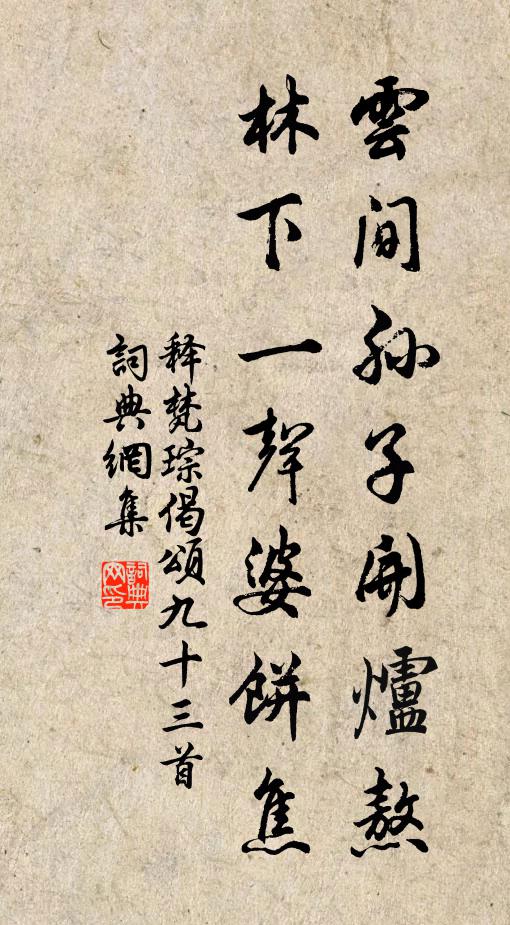 雲間孙子開爐熬
林下一聲婆餅焦
释梵琮偈頌九十三首
詞典網集
詞典网印